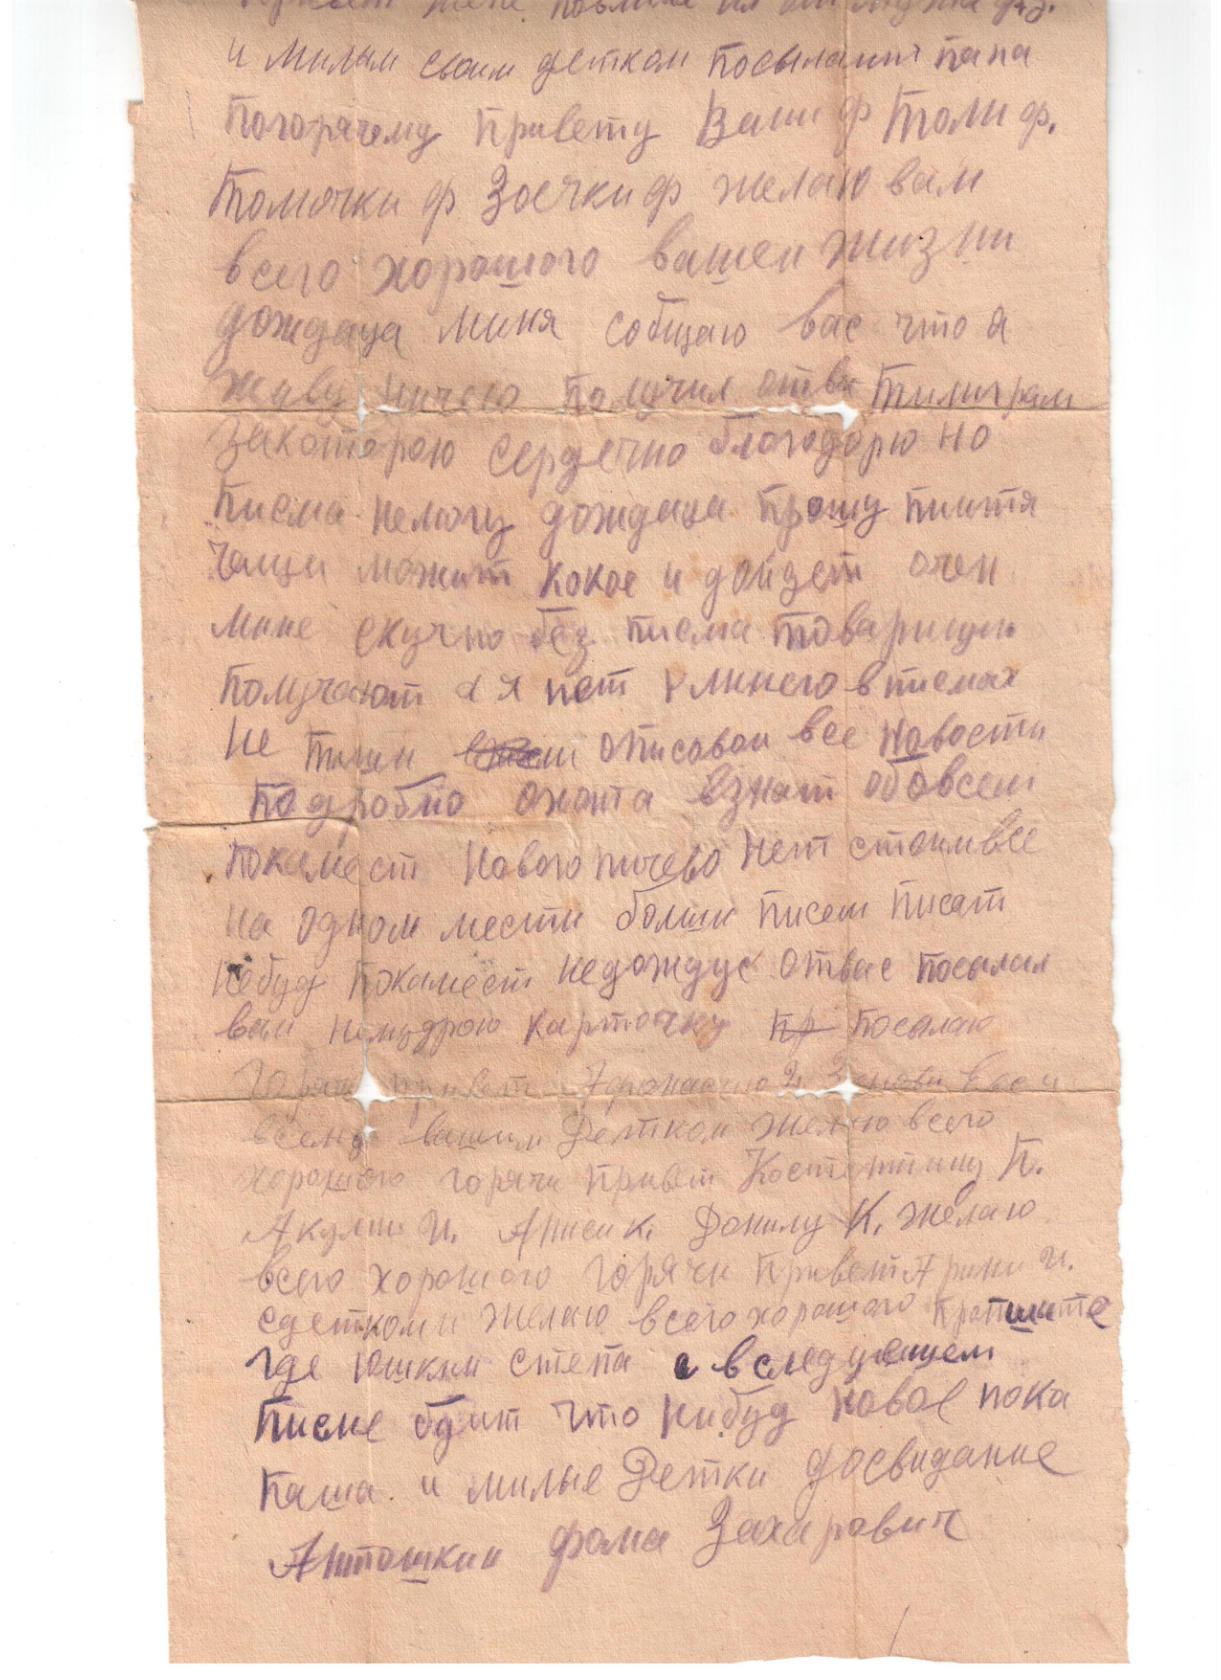 и милым своим деткам посылаит папа
погорячему привету Вани ф Толи ф.
Томочки ф Зоечки ф желаю вам
всего хорошого вашеи жизни
дождаца миня собщаю вас что я
живу ничего получил отвас тилиграм
закоторою сердечно благодорю но
писма немогу дождаца прошу пишитя
чащи можит кокое и дойдет очен
мине скучно без писма товарищи
получают а я нет уминего в писмах
не пиши описоваи все новости
подробно охота взнат обовсем
покамест нового ничево нет стоим все
на одном мести болши писем писат
небуду покамест недождус отвас посылал
вам немудрою карточку пр посылаю
горячи привет
всему вашим Деткам желаю всего
хорошого горячи привет Костентину П.
Акулин И. Анися К. Данилу К. желаю
всего хорошого горячи привет Арини И.
сдеткоми желаю всего хорошого пропишите
где Юшкин степа а вследующем
писме будит что нибуд новое пока
паша и милые Детки досвидание
Антошкин фома Захарович